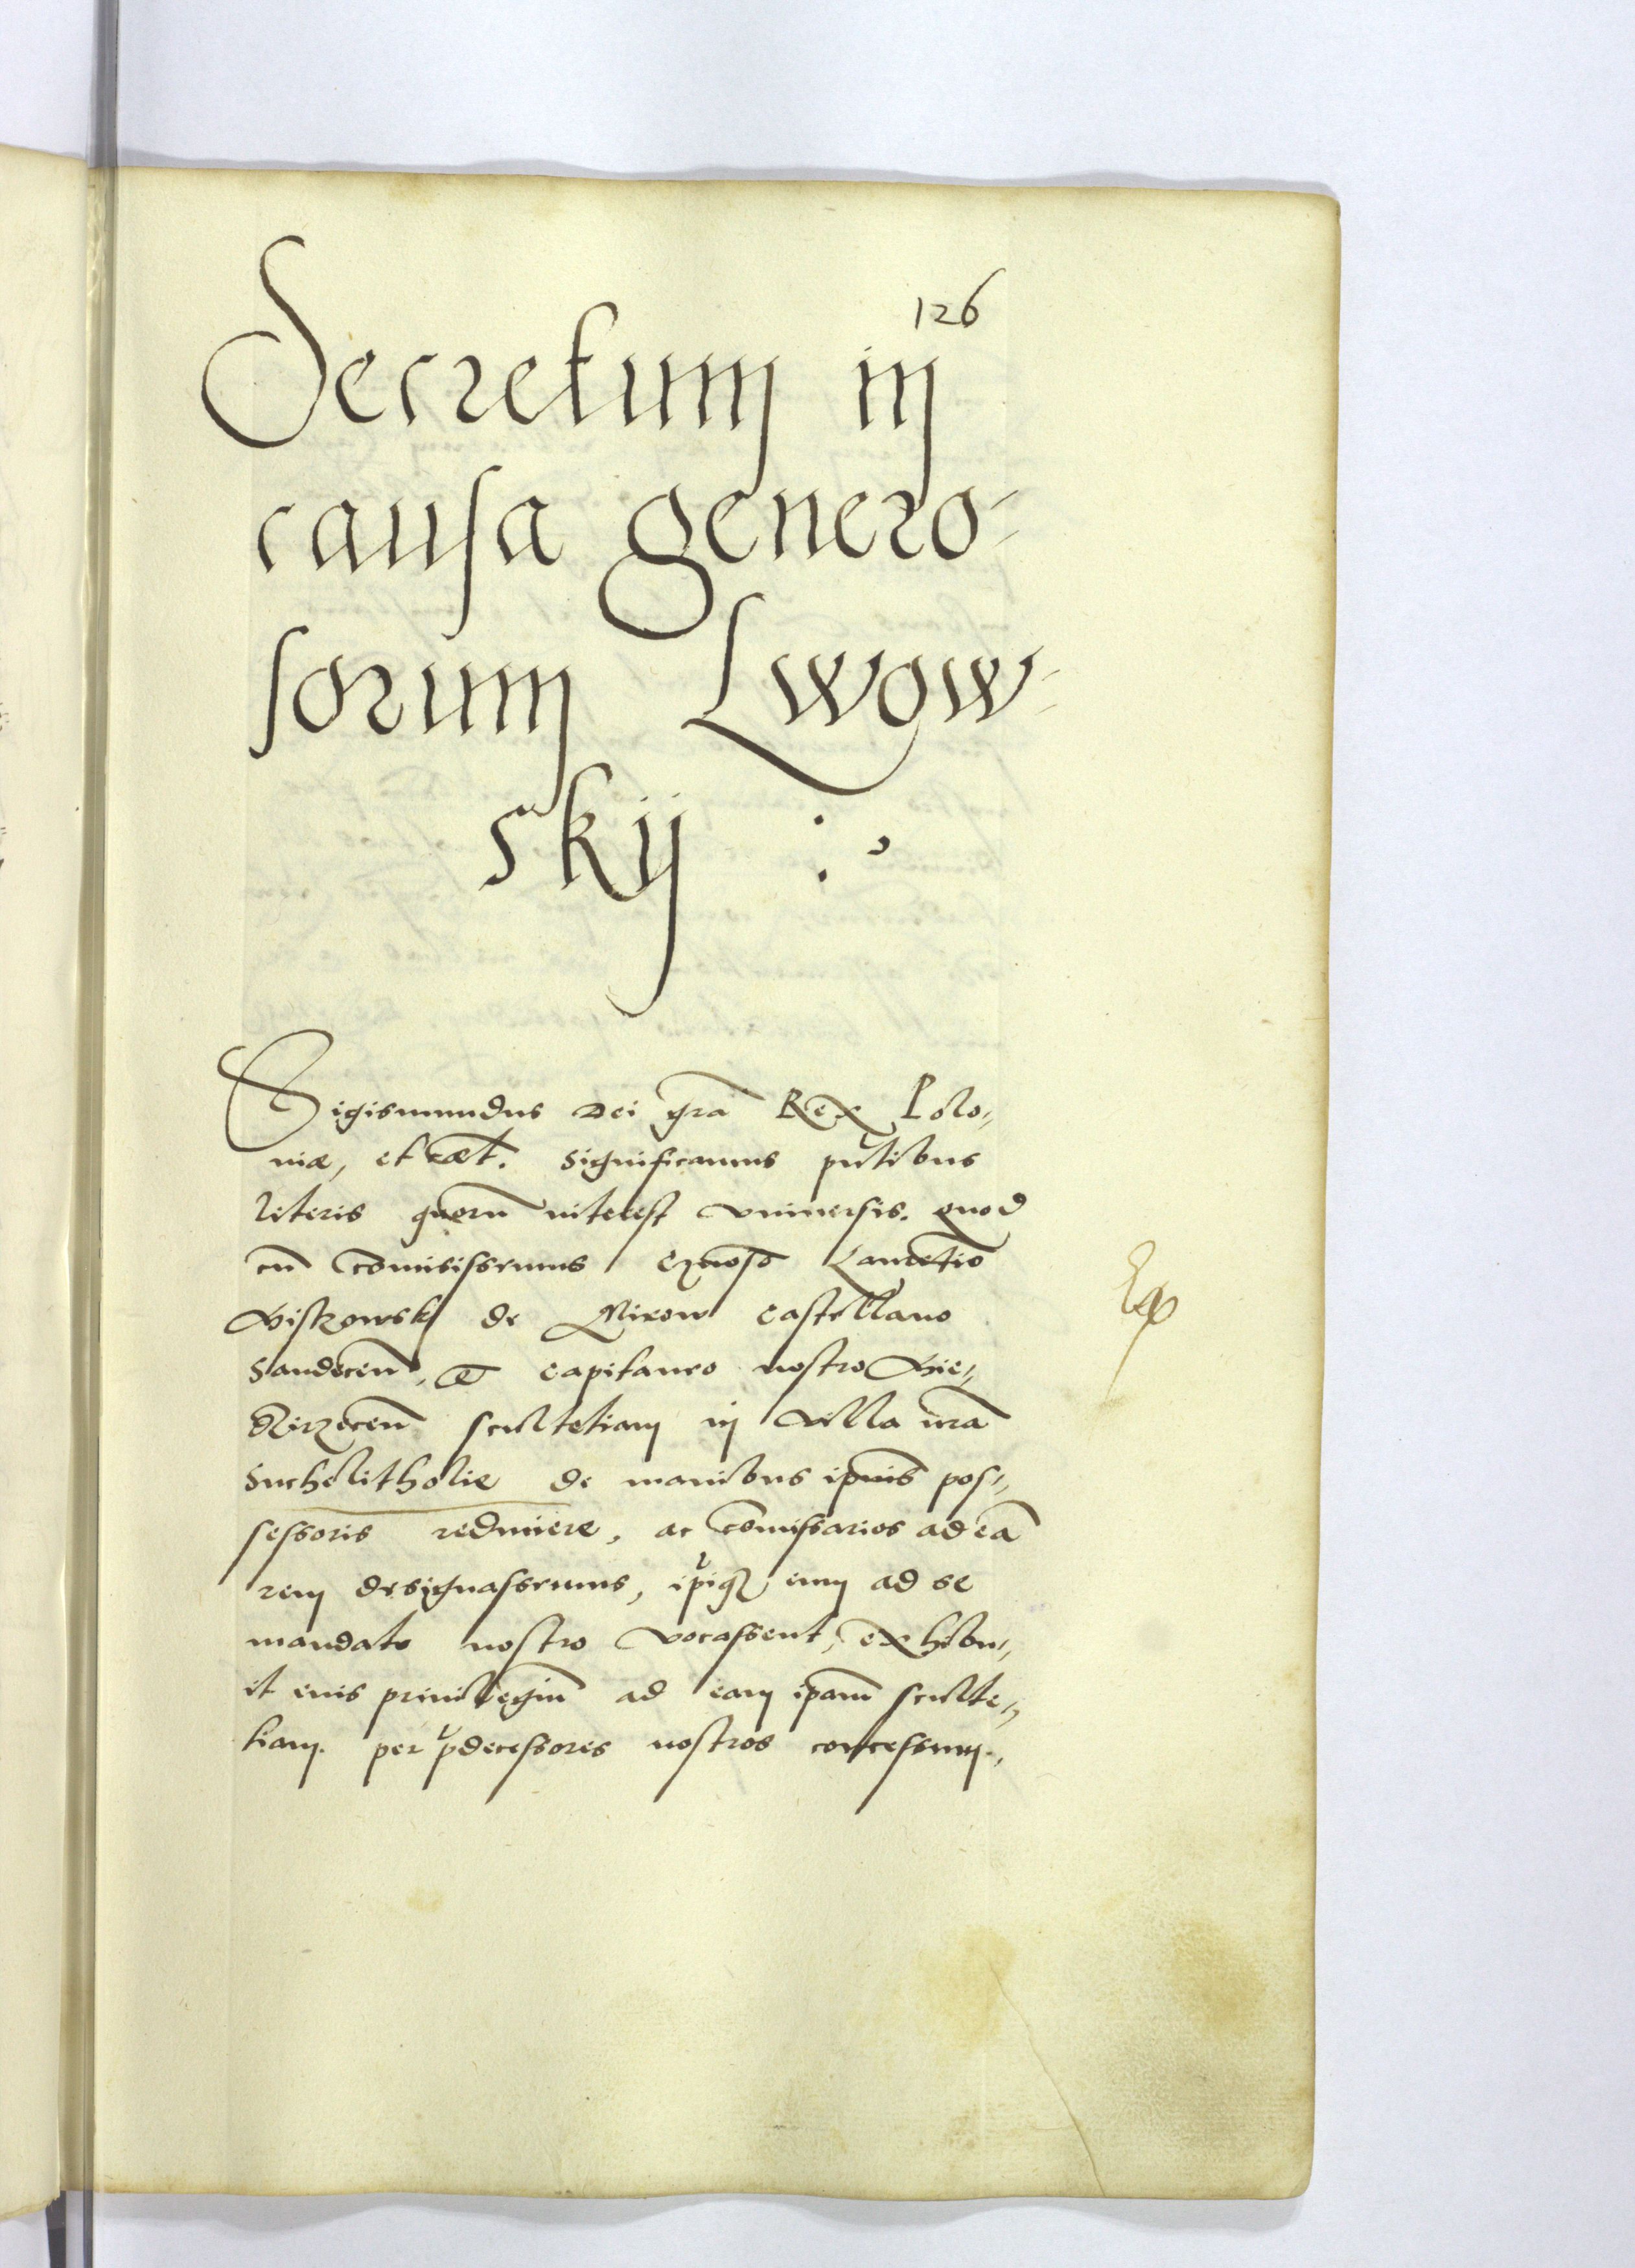 126
Decretum in
causa genero-
sorum Lwow-
skij
Sigismundus Dei gra Rex Polo,
niæ, et cæt. Significamus pntibus
leteris quoru interest vniuersis. quod
cu comisissemus
de Mirow castellano
Sandecen, et capitaneo nostro
scultetiam in villa nra
Suchelitholie de manibus ipius pos,,
sessoris redimere, ac comissarios ad ea
rem designassemus, ipiq3 eum ad se
mandato nostro vocassent, exhibu,,
it eius priuilegiu ad eam ipam sculte,,
tiam per pdecessores nostros concessum.,